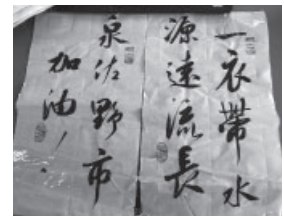 一衣帶水
源遠流長
泉佐野市
加油！